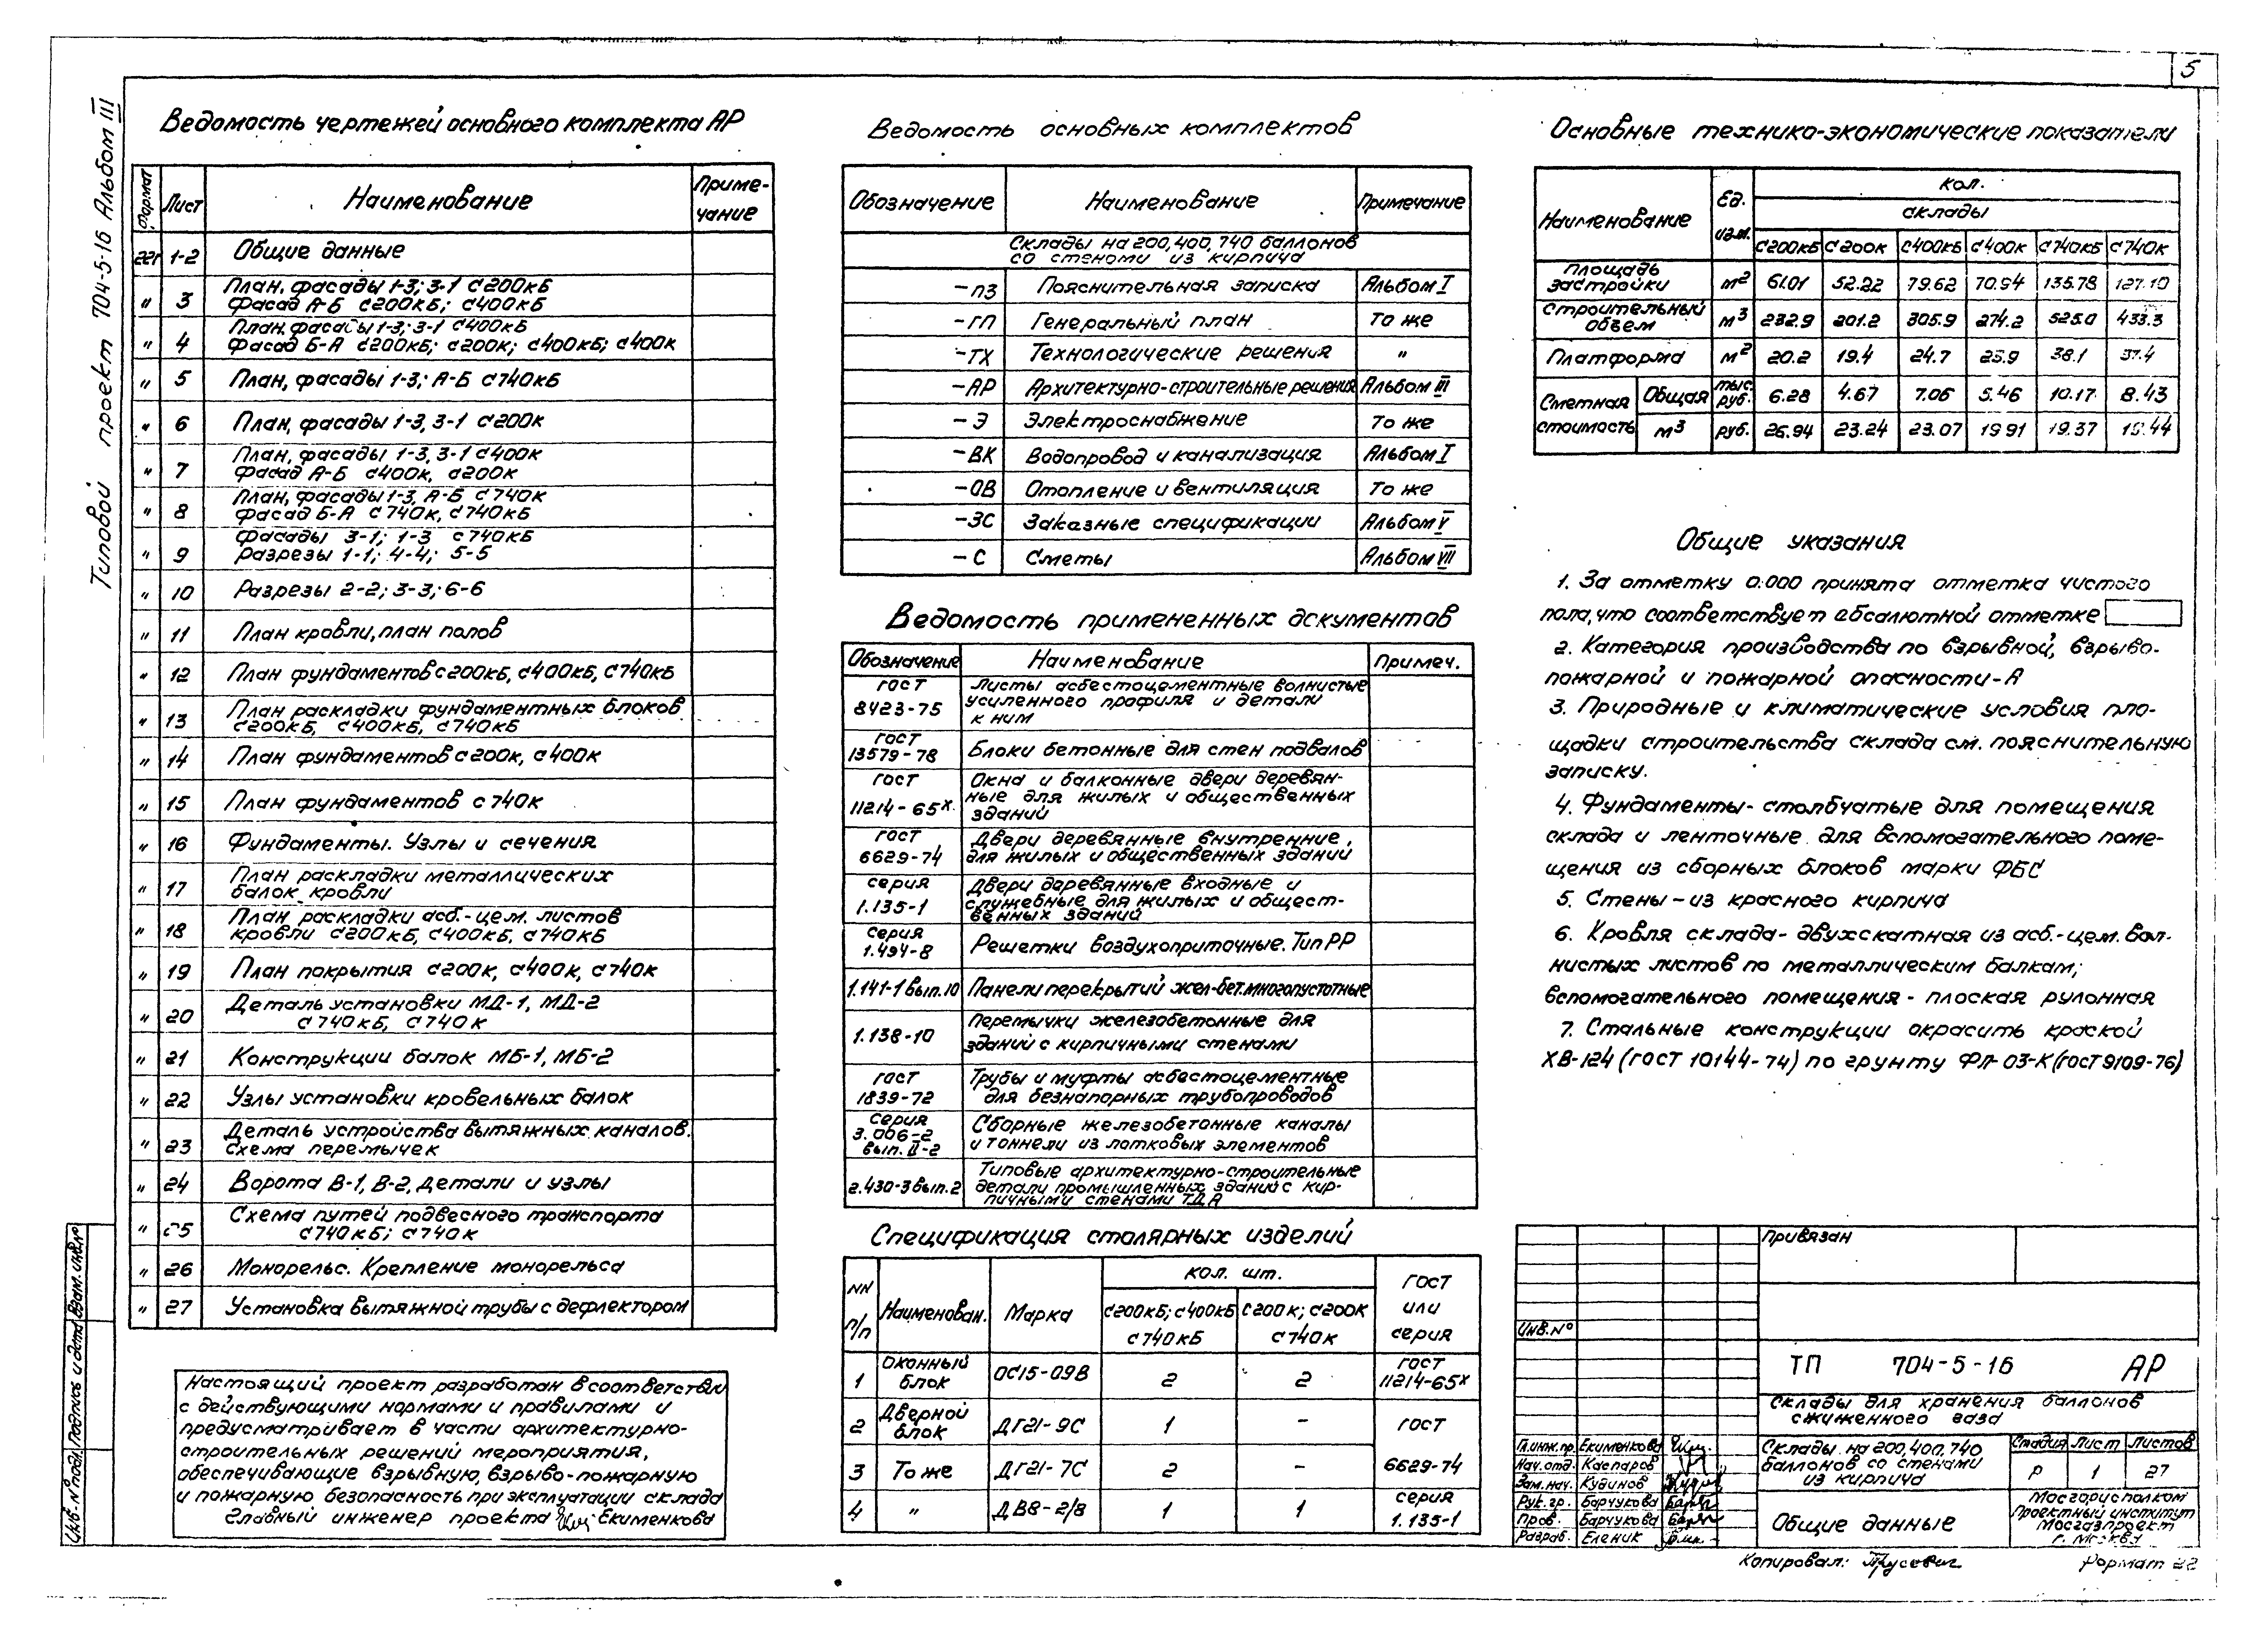 5
Типовой проект 704-5-16 Альбом III
Ведомость чертежей основного комплекта АР
Формат Лист Наименование Приме-
чание
22г 1-2 Общие данные
" 3 План, фасады 1-3; 3-1 С200кБ
фасад А-Б С200кБ; С400кБ
" 4 План, фасады 1-3; 3-1 С400кБ
фасад Б-А С200кБ; С200к; С400кБ; С400к
" 5 План, фасады 1-3; А-Б С740кБ
" 6 План, фасады 1-3, 3-1 С200к
" 7 План, фасады 1-3, 3-1 С400к
фасад А-Б С400к, С200к
" 8 План, фасады 1-3, А-Б С740к
фасад Б-А С740к, С740кБ
" 9 Фасады 3-1; 1-3 С740кБ
разрезы 1-1; 4-4; 5-5
" 10 Разрезы 2-2; 3-3; 6-6
" 11 План кровли, план полов
" 12 План фундаментов С200кБ, С400кБ, С740кБ
" 13 План раскладки фундаментных блоков
С200кБ, С400кБ, С740кБ
" 14 План фундаментов С200к, С400к
" 15 План фундаментов С740к
" 16 Фундаменты. Узлы и сечения
" 17 План раскладки металлических
балок кровли
" 18 План раскладки асб.-цем. листов
кровли С200кБ, С400кБ, С740кБ
" 19 План покрытия С200к, С400к, С740к
" 20 Деталь установки МД-1, МД-2
С740кБ, С740к
" 21 Конструкции балок МБ-1, МБ-2
" 22 Узлы установки кровельных балок
" 23 Деталь устройства вытяжных каналов.
Схема перемычек
" 24 Ворота В-1, В-2, детали и узлы
" 25 Схема путей подвесного транспорта
С740кБ; С740к
" 26 Монорельс. Крепление монорельса
" 27 Установка вытяжной трубы с дефлектором
Настоящий проект разработан в соответствии
с действующими нормами и правилами и
предусматривает в части архитектурно-
строительных решений мероприятия,
обеспечивающие взрывную, взрыво-пожарную
и пожарную безопасность при эксплуатации склада
Главный инженер проекта Екименкова
Ведомость основных комплектов
Обозначение Наименование Примечание
Склады на 200, 400, 740 баллонов
со стенами из кирпича
-ПЗ Пояснительная записка Альбом I
-ГП Генеральный план То же
-ТХ Технологические решения "
-АР Архитектурно-строительные решения Альбом III
-Э Электроснабжение То же
-ВК Водопровод и канализация Альбом I
-ОВ Отопление и вентиляция То же
-ЗС Заказные спецификации Альбом V
-С Сметы Альбом VII
Ведомость примененных документов
Обозначение Наименование Примеч.
ГОСТ
8423-75 Листы асбестоцементные волнистые
усиленного профиля и детали
к ним
ГОСТ
13579-78 Блоки бетонные для стен подвалов
ГОСТ
11214-65х. Окна и балконные двери деревян-
ные для жилых и общественных
зданий
ГОСТ
6629-74 Двери деревянные внутренние,
для жилых и общественных зданий
Серия
1.135-1 Двери деревянные входные и
служебные для жилых и общест-
венных зданий
Серия
1.494-8 Решетки воздухоприточные. Тип РР
1.141-1 вып.10 Панели перекрытий жел-бет. многопустотные
1.138-10 Перемычки железобетонные для
зданий с кирпичными стенами
ГОСТ
1839-72 Трубы и муфты асбестоцементные
для безнапорных трубопроводов
Серия
3.006-2
вып. II-2 Сборные железобетонные каналы
и тоннели из лотковых элементов
2.430-3 вып.2 Типовые архитектурно-строительные
детали промышленных зданий с кир-
пичными стенами ТДА
Спецификация столярных изделий
NN
п/п Наименован. Марка Кол. шт. ГОСТ
или
серия
С200кБ; С400кБ
С740кБ С200к; С200к
С740к
1 Оконный
блок ОС15-09В 2 2 ГОСТ
11214-65х
2 Дверной
блок ДГ21-9С 1 - ГОСТ
3 То же ДГ21-7С 2 - 6629-74
4 " ДВ8-2/8 1 1 серия
1.135-1
Основные технико-экономические показатели
Наименование Ед.
изм. Кол.
Склады
С200кБ С200к С400кБ С400к С740кБ С740к
Площадь
застройки м2 61.01 52.22 79.62 70.94 135.78 127.10
Строительный
объем м3 232.9 201.2 305.9 274.2 525.0 433.3
Платформа м2 20.2 19.4 24.7 23.9 38.1 37.4
Сметная
стоимость Общая тыс.
руб. 6.28 4.67 7.06 5.46 10.17 8.43
м3 руб. 26.94 23.24 23.07 19.91 19.37 19.44
Общие указания
1. За отметку 0.000 принята отметка чистого
пола, что соответствует абсалютной отметке
2. Категория производства по взрывной, взрыво-
пожарной и пожарной опасности-А
3. Природные и климатические условия пло-
щадки строительства склада см. пояснительную
записку.
4. Фундаменты- столбчатые для помещения
склада и ленточные для вспомогательного поме-
щения из сборных блоков марки ФБС
5. Стены-из красного кирпича
6. Кровля склада- двухскатная из асб.-цем. вол-
нистых листов по металлическим балкам;
вспомогательного помещения- плоская рулонная
7. Стальные конструкции окрасить краской
ХВ-124 (ГОСТ 10144-74) по грунту ФЛ-03-К (ГОСТ 9109-76)
Привязан
Инв.№
ТП 704-5-16 АР
Склады для хранения баллонов
сжиженного газа
Гл.инж.пр. Екименкова
Нач.отд. Каспаров
Зам.нач. Кудинов
Рук.гр. Барчукова
Пров. Барчукова
Разраб. Еленик
Склады на 200, 400, 740
баллонов со стенами
из кирпича
Стадия Лист Листов
Р 1 27
Общие данные
Мосгорисполком
Проектный институт
Мосгазпроект
г. Москва
Копировал: Трусевич Формат 22
Инв.№подл. Подпись и дата Взам.инв.№